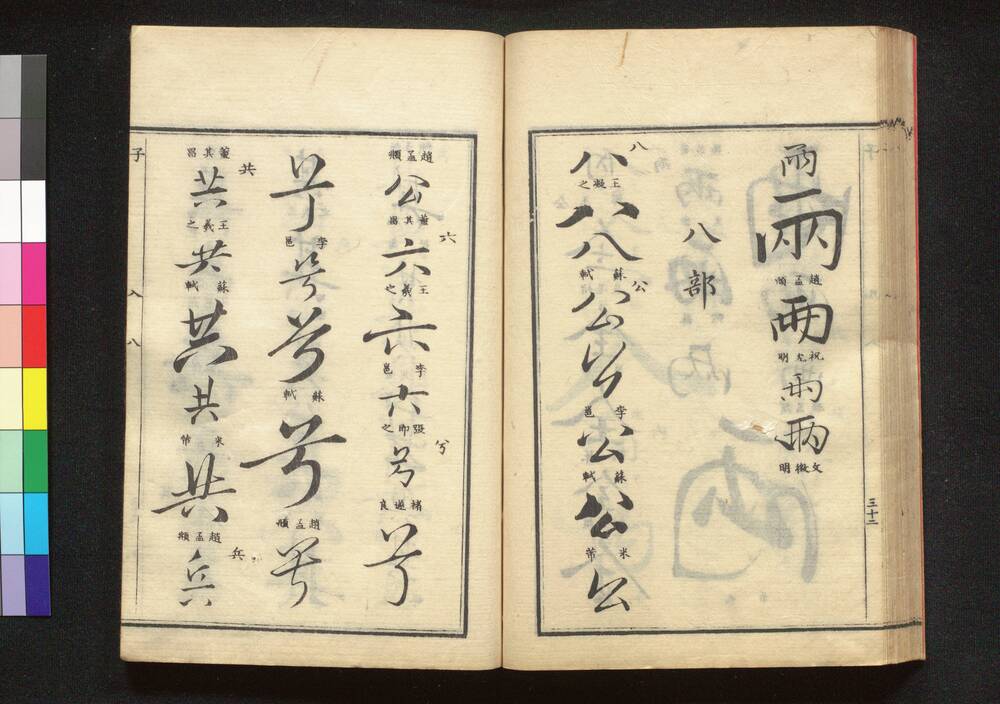 三十二
兩兩
趙孟頫
兩
祝允明
兩兩
文徵明
八部
八
八
王凝之
八八
蘇軾
公
公公
李邕
公
蘇軾
公
米芾
公
趙孟頫
公
董其昌
六
六
王羲之
六
李邕
六
張即之
兮
兮
褚遂良
兮
兮
李邕
兮兮
蘇軾
兮
趙孟頫
兮
董其昌
共
共
王羲之
共
蘇軾
共共
米芾
共
趙孟頫
兵
兵
子
八
八